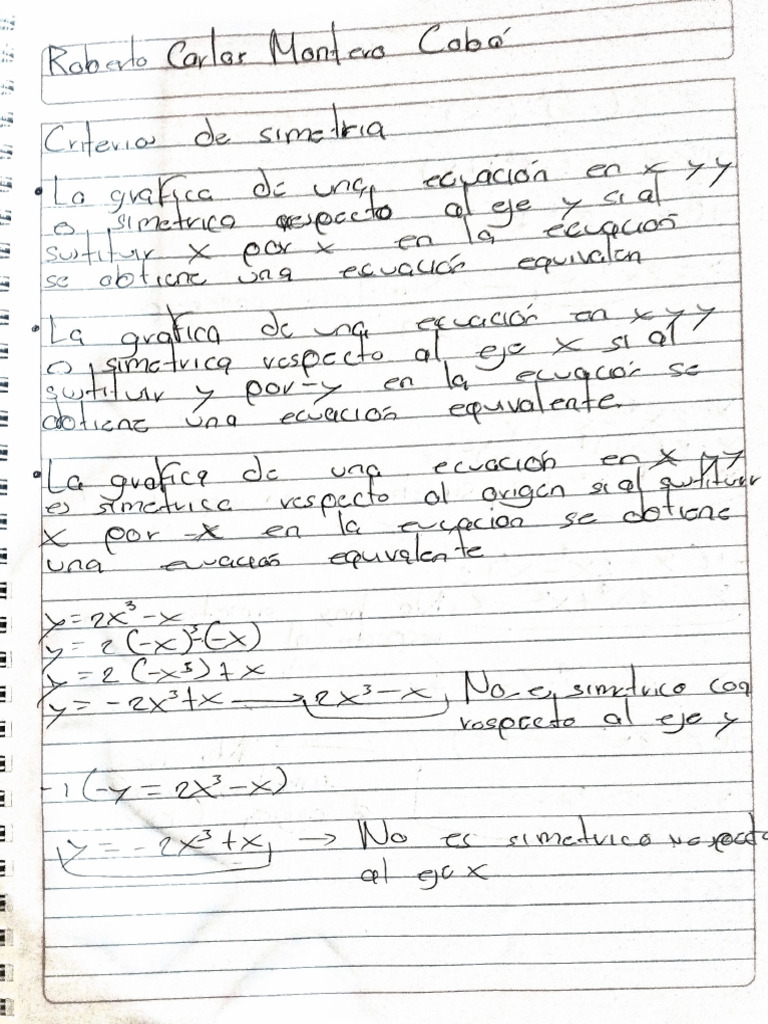 Roberto Carlos Montero Cobá
Criterios de simetria
• La grafica de una, ecuación en x y y
es simetrica respecto al eje y si al
sustituir x por x en la ecuación
se obtiene una ecuación equivalen
• La grafica de una ecuación en x y y
es simetrica respecto al eje x si al
sustituir y por -y en la ecuación se
obtiene una ecuación equivalente.
• La grafica de una ecuación en x y y
es simetrica respecto al origen si al sustituir
x por -x en la ecuacion se obtiene
una ecuación equivalente
y = 2x³ - x
y = 2(-x)³-(-x)
y = 2(-x³)+x
y = -2x³+x → 2x³-x, No es simetrico con
respecto al eje y
-1(-y = 2x³-x)
y = -2x³+x, → No es simetrico respecto
al eje x